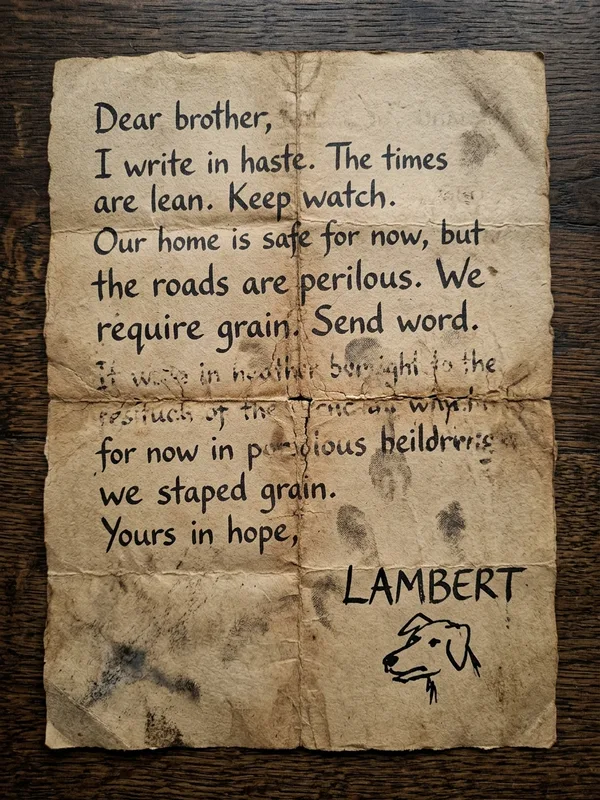 Dear brother,
I write in haste. The times
are lean. Keep watch.
Our home is safe for now, but
the roads are perilous. We
require grain. Send word.
in to the
of the
for now in
we staped grain.
Yours in hope,
LAMBERT